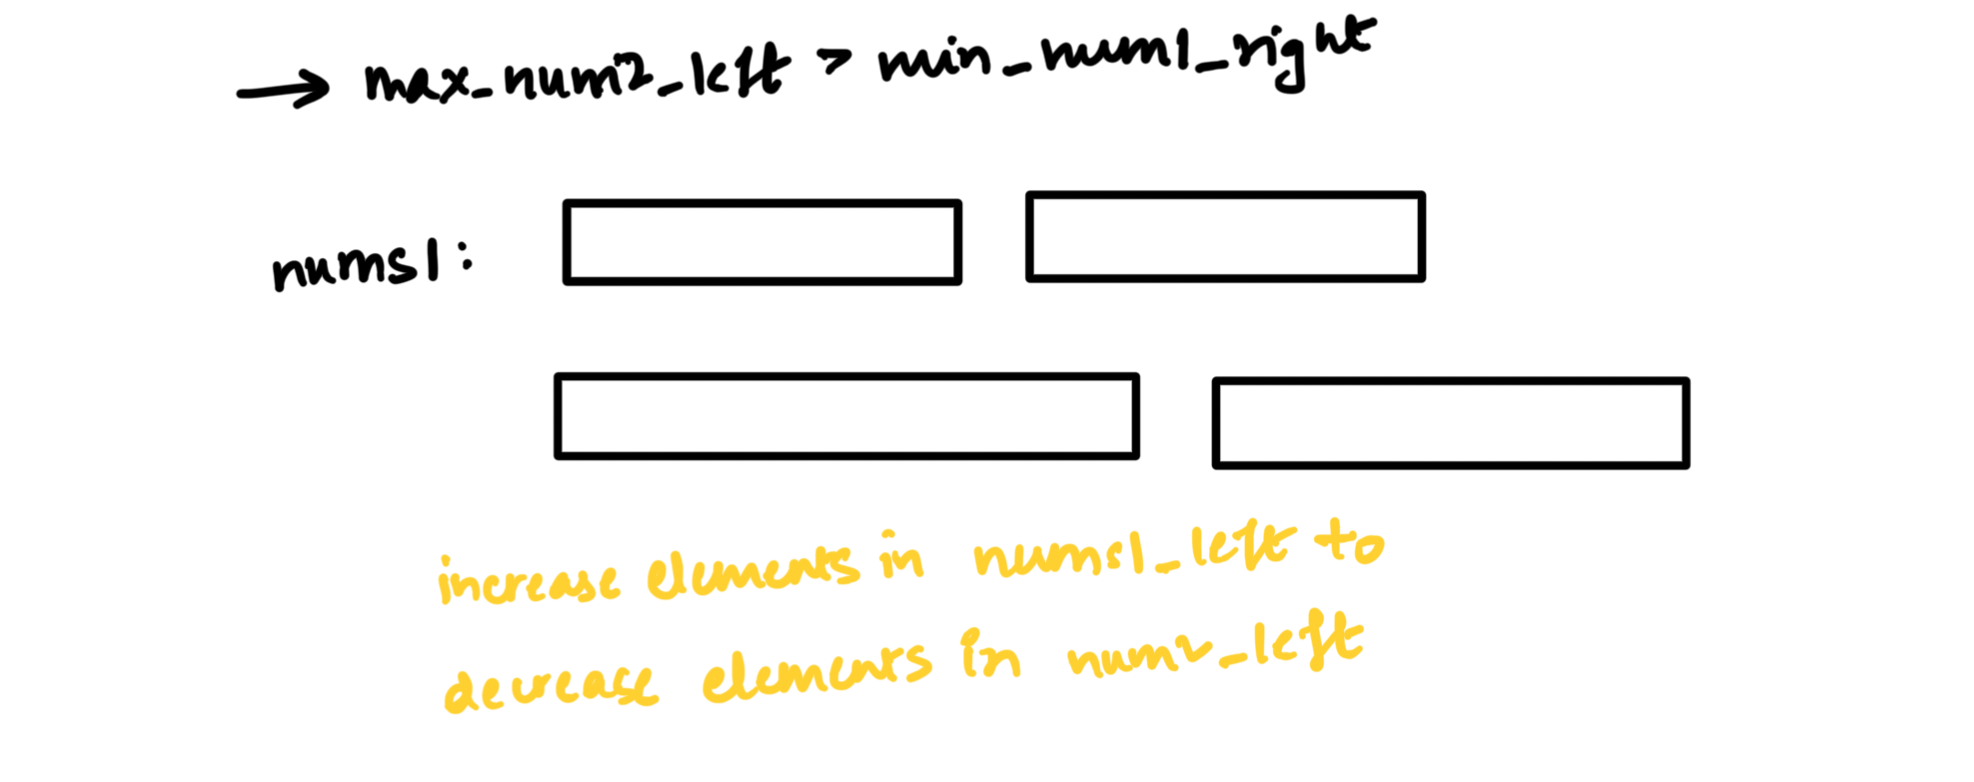 → max_num2_left > min_num1_right
nums1:
increase elements in nums1_left to
decrease elements in num2_left